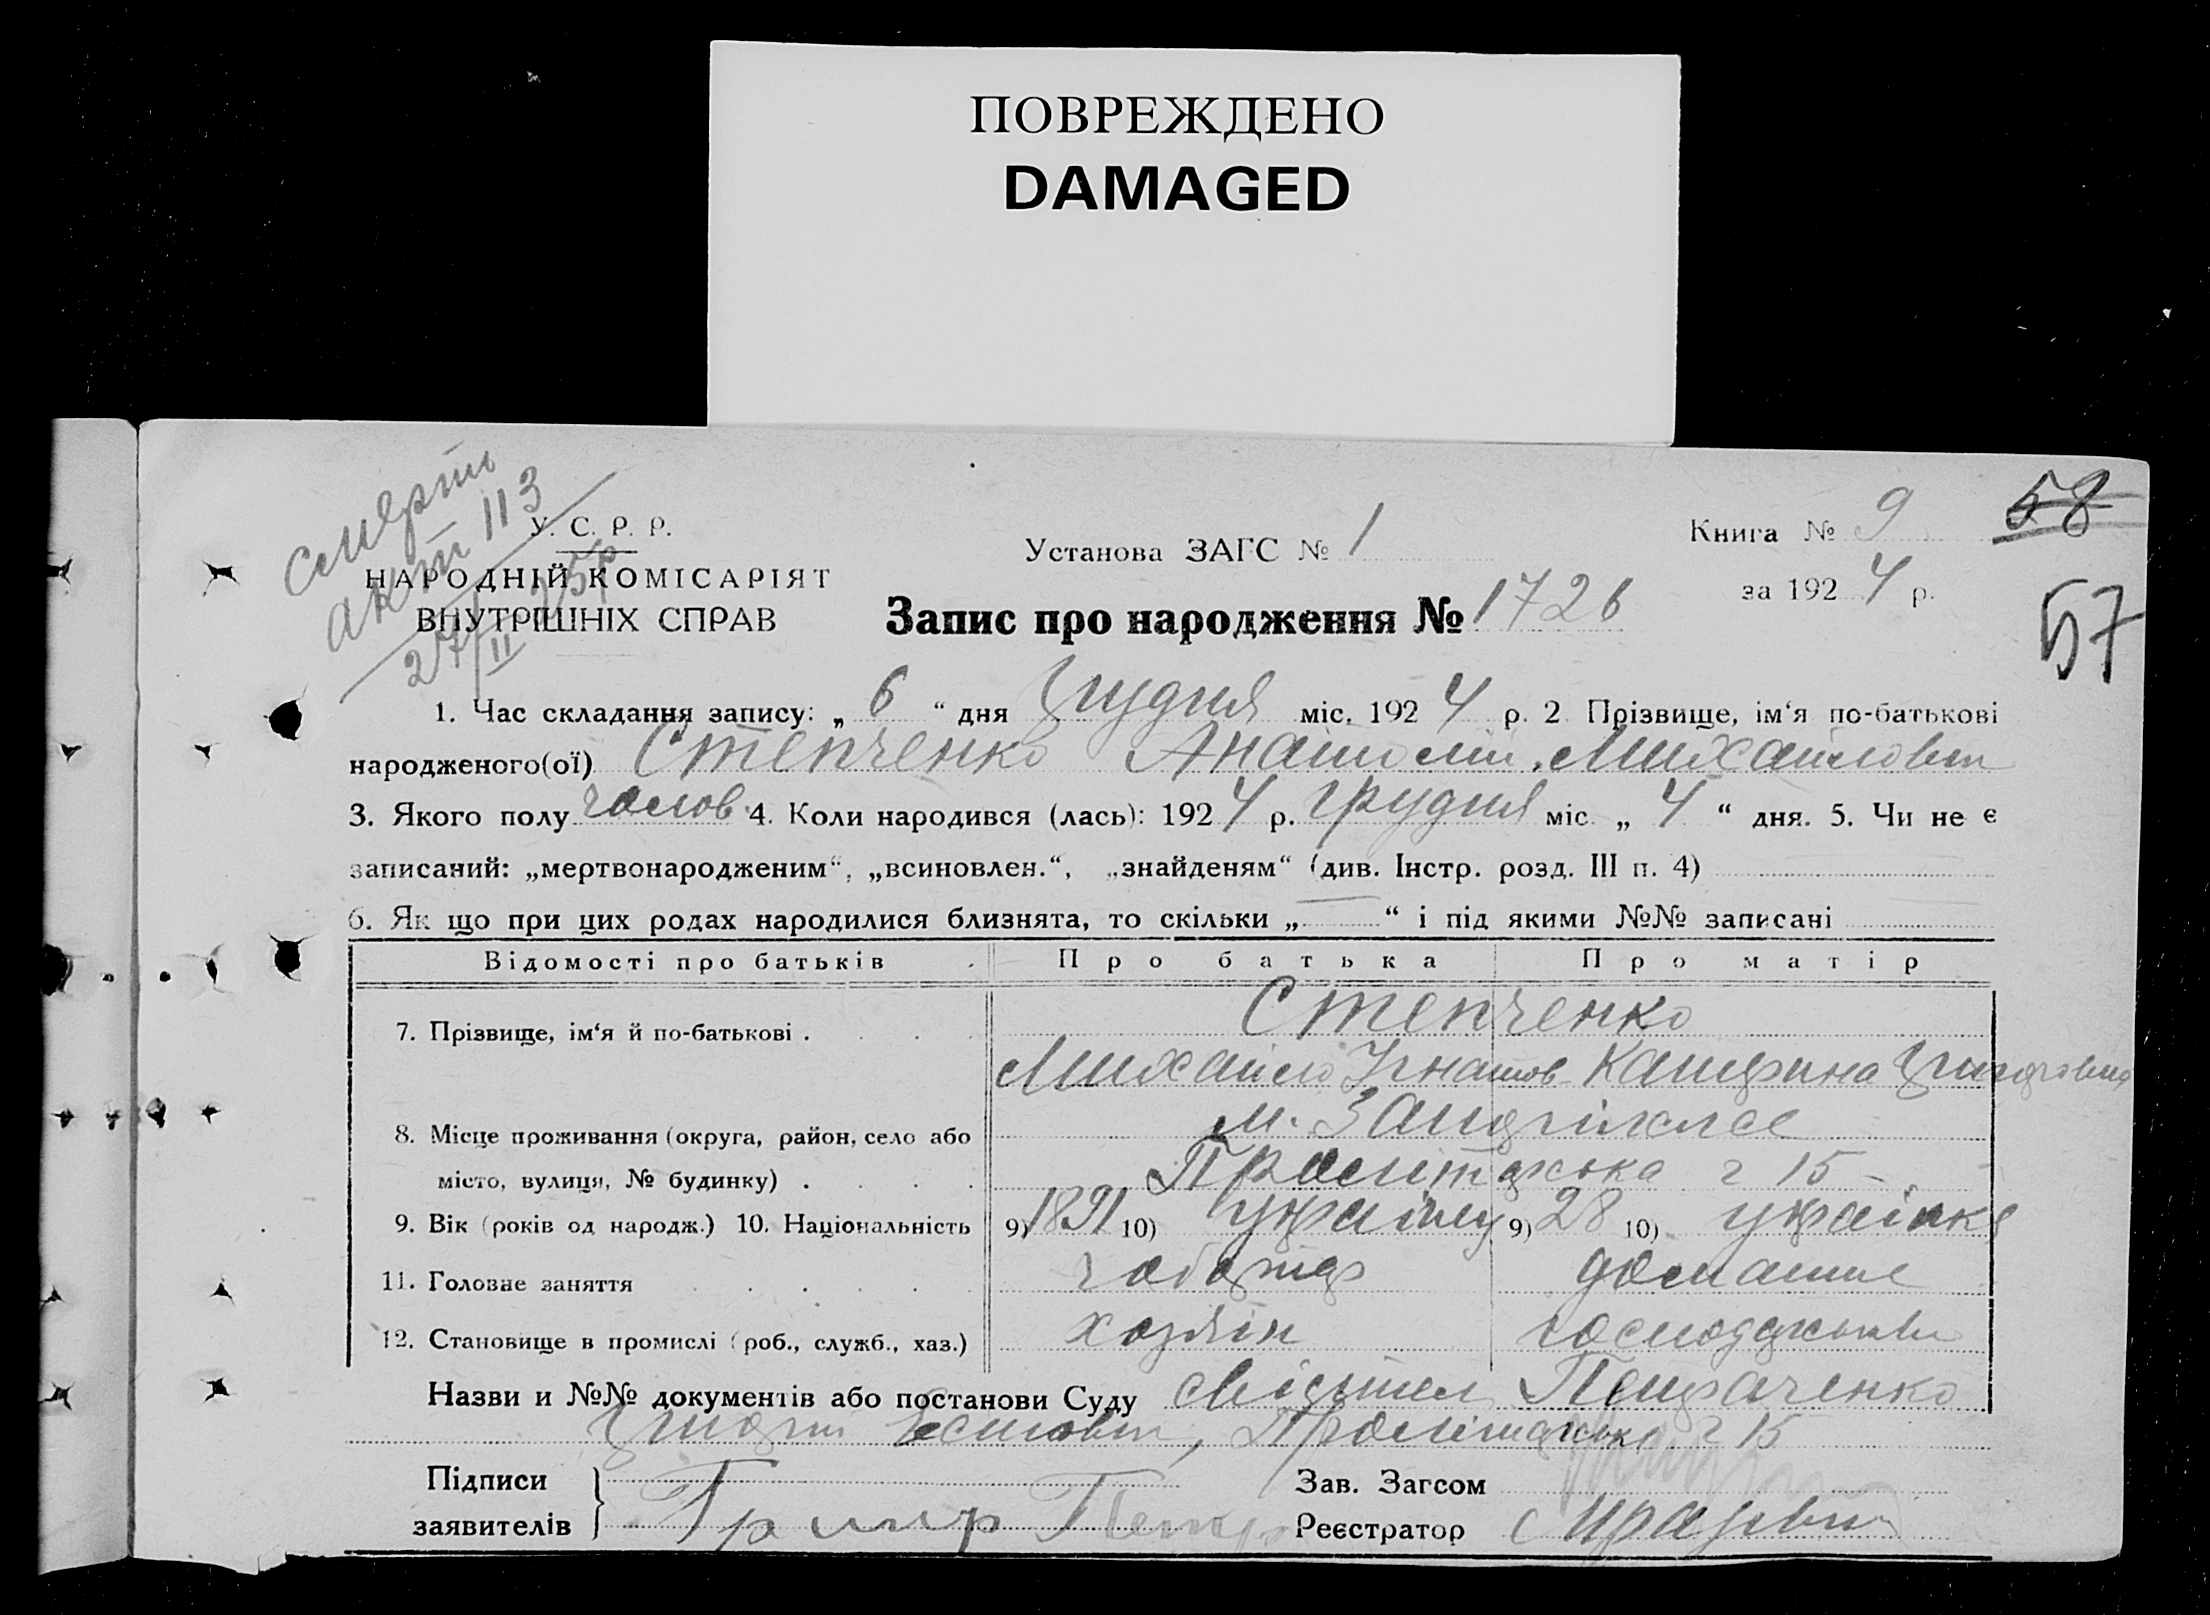 ПОВРЕЖДЕНО
DAMAGED
смерть
акт 113
27/II 25р
У. С. Р. Р.
НАРОДНІЙ КОМІСАРІЯТ
ВНУТРІШНІХ СПРАВ
Установа ЗАГС № 1
Книга № 9
58
за 1924 р.
57
Запис про народження № 1726
1. Час складання запису: „ 6 “ дня грудня міс. 1924 р. 2 Прізвище, ім‘я по-батькові
народженого(ої) Степченко Анатолій Михайлович
3. Якого полу чолов. 4. Коли народився (лась): 1924 р. грудня міс. „ 4 “ дня. 5. Чи не є
записаний: „мертвонародженим“, „всиновлен.“, „знайденям“ (див. Інстр. розд. III п. 4)
6. Як що при цих родах народилися близнята, то скільки „ — “ і під якими №№ записані
Відомості про батьків Про батька Про матір
7. Прізвище, ім‘я й по-батькові . . . . Степченко
Михайло Ігнатов. Катерина
8. Місце проживання (округа, район, село або м.
місто, вулиця, № будинку) . . . . Пролетарська ч 15
9. Вік (років од народж.) 10. Національність 9) 1891 10) україн 9) 28 10) українка
11. Головне заняття . . . . . чоботар домашнє
12. Становище в промислі (роб., служб., хаз.) хозяїн господарство
Назви и №№ документів або постанови Суду
Пролетарська ч 15
Підписи
заявителів
Зав. Загсом
Реєстратор